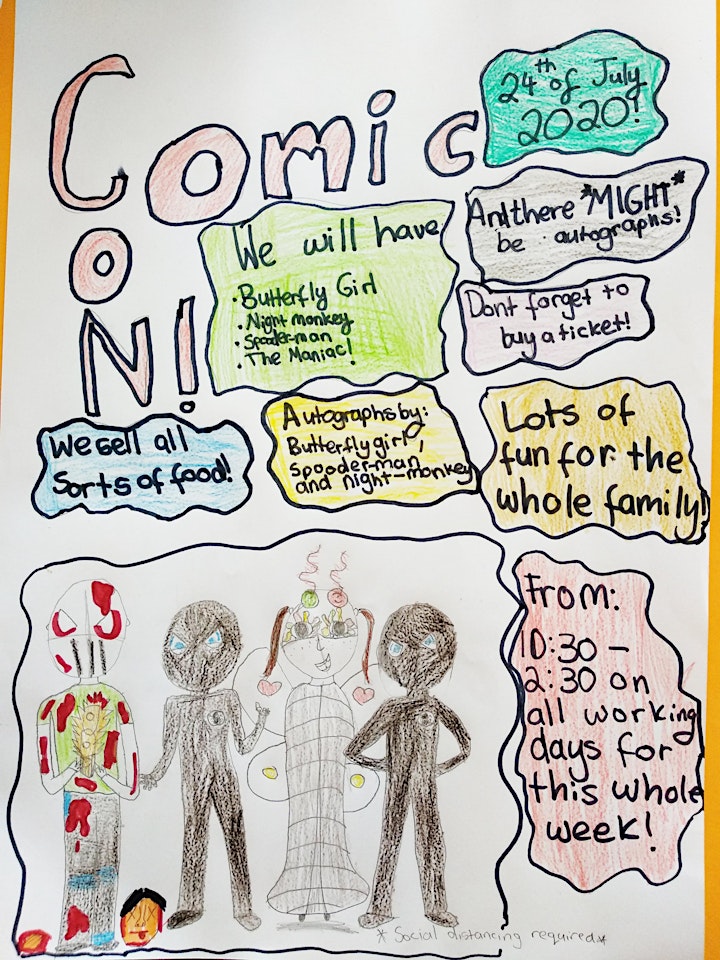 Comic
CON!
24th of July
2020!
And there *MIGHT*
be autographs!
We will have
• Butterfly Girl
• Night monkey
• Spooder-man
• The Maniac!
Dont forget to
buy a ticket!
We sell all
Sorts of food!
Autographs by:
Butterfly girl,
spooder-man
and night-monkey
Lots of
fun for the
whole family!
From:
10:30 -
2:30 on
all working
days for
this whole
week!
* Social distancing required *